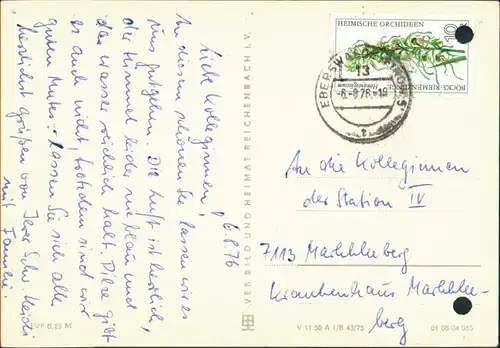 6.8.76
Liebe Kolleginnen!
An diesem schönen See lassen wir es
uns gutgehen. Die Luft ist herrlich,
der Himmel leider nie blau und
das Wasser reichlich kalt. Pilze gibt
es auch nicht, trotzdem sind wir
guten Muts. Lassen Sie sich alle
herzlichst grüßen von Ihrer Schw. Heidi
mit Familie.
EVP 0,20 M
VEB BILD UND HEIMAT REICHENBACH I. V.
HEIMISCHE ORCHIDEEN
10
DDR
BOCKS-RIEMENZUNGE
EBERSW
13
-6.-8.76.-19
An die Kolleginnen
der Station IV
7113 Markkleeberg
Krankenhaus Markklee-
berg
V 11 50 A 1/B 43/75 01 05 04 065